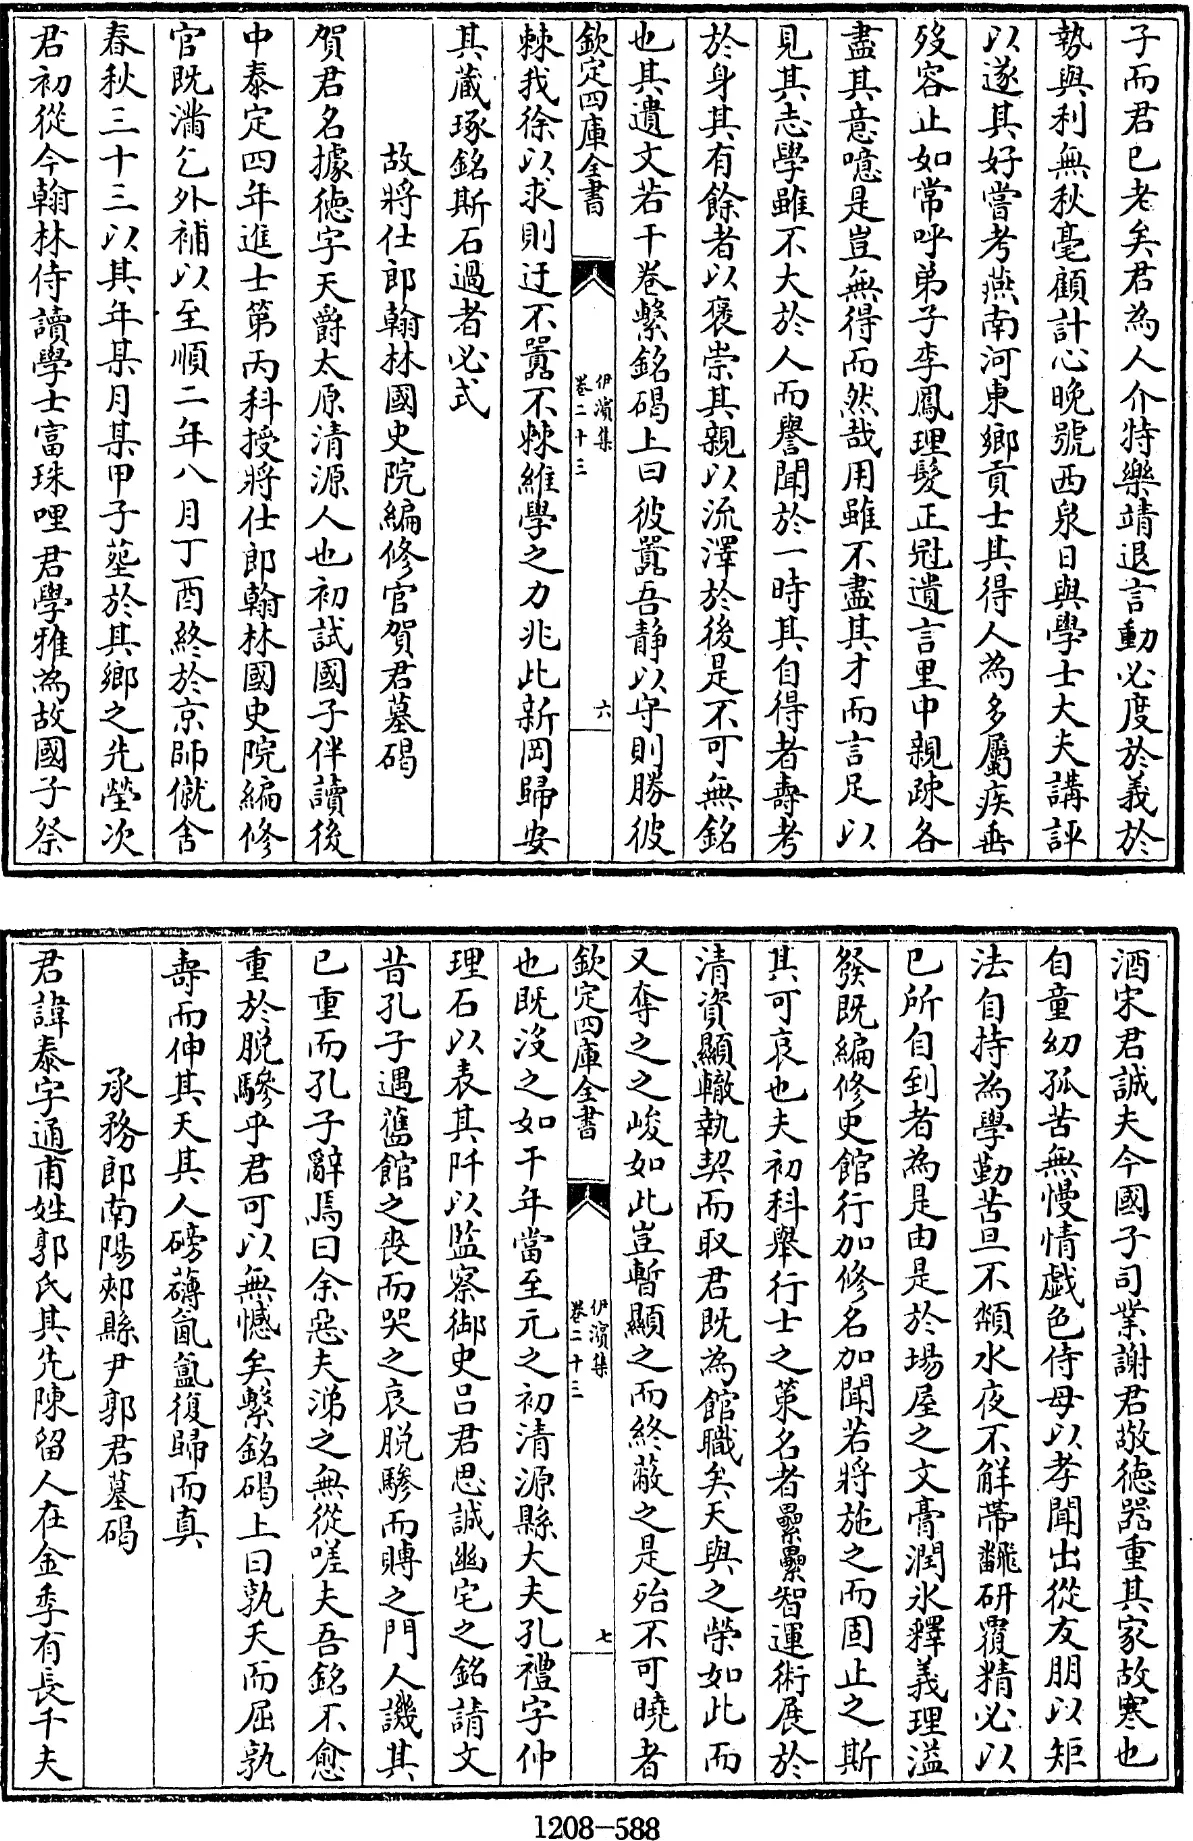 子而君已老矣君為人介特樂靖退言動必度於義於
勢與利無秋毫顧計心晚號西泉日與學士大夫講評
以遂其好嘗考燕南河東鄉貢士其得人為多屬疾垂
歿容止如常呼弟子李鳳理髮正冠遺言里中親疎各
盡其意噫是豈無得而然哉用雖不盡其才而言足以
見其志學雖不大於人而譽聞於一時其自得者壽考
於身其有餘者以褒崇其親以流澤於後是不可無銘
也其遺文若干卷繫銘碣上曰彼囂吾靜以守則勝彼
欽定四庫全書
伊濱集
卷二十三
六
棘我徐以求則迂不囂不棘維學之力兆此新岡歸安
其藏琢銘斯石過者必式
故將仕郎翰林國史院編修官賀君墓碣
賀君名據德字天爵太原清源人也初試國子伴讀後
中泰定四年進士第丙科授將仕郎翰林國史院編修
官既滿乞外補以至順二年八月丁酉終於京師僦舍
春秋三十三以其年某月某甲子塟於其鄉之先塋次
君初從今翰林侍讀學士富珠哩君學雅為故國子祭
酒宋君誠夫今國子司業謝君敬德器重其家故寒也
自童幼孤苦無慢情戲色侍母以孝聞出從友朋以矩
法自持為學勤苦旦不頮水夜不解帶飜研覆精必以
已所自到者為是由是於塲屋之文膏潤氷釋義理溢
發既編修史館行加修名加聞若將施之而固止之斯
其可哀也夫初科舉行士之策名者纍纍智運術展於
清資顯轍執契而取君既為館職矣天與之榮如此而
又奪之之峻如此豈暫顯之而終蔽之是殆不可曉者
欽定四庫全書
伊濱集
卷二十三
七
也既没之如干年當至元之初清源縣大夫孔禮字仲
理石以表其阡以監察御史呂君思誠幽宅之銘請文
昔孔子遇舊館之喪而哭之哀脱驂而賻之門人譏其
已重而孔子辭焉曰余惡夫涕之無從嗟夫吾銘不愈
重於脱驂乎君可以無憾矣繫銘碣上曰孰夭而屈孰
壽而伸其天其人磅礴氤氳復歸而真
承務郎南陽郟縣尹郭君墓碣
君諱泰字通甫姓郭氏其先陳留人在金季有長千夫
1208-588